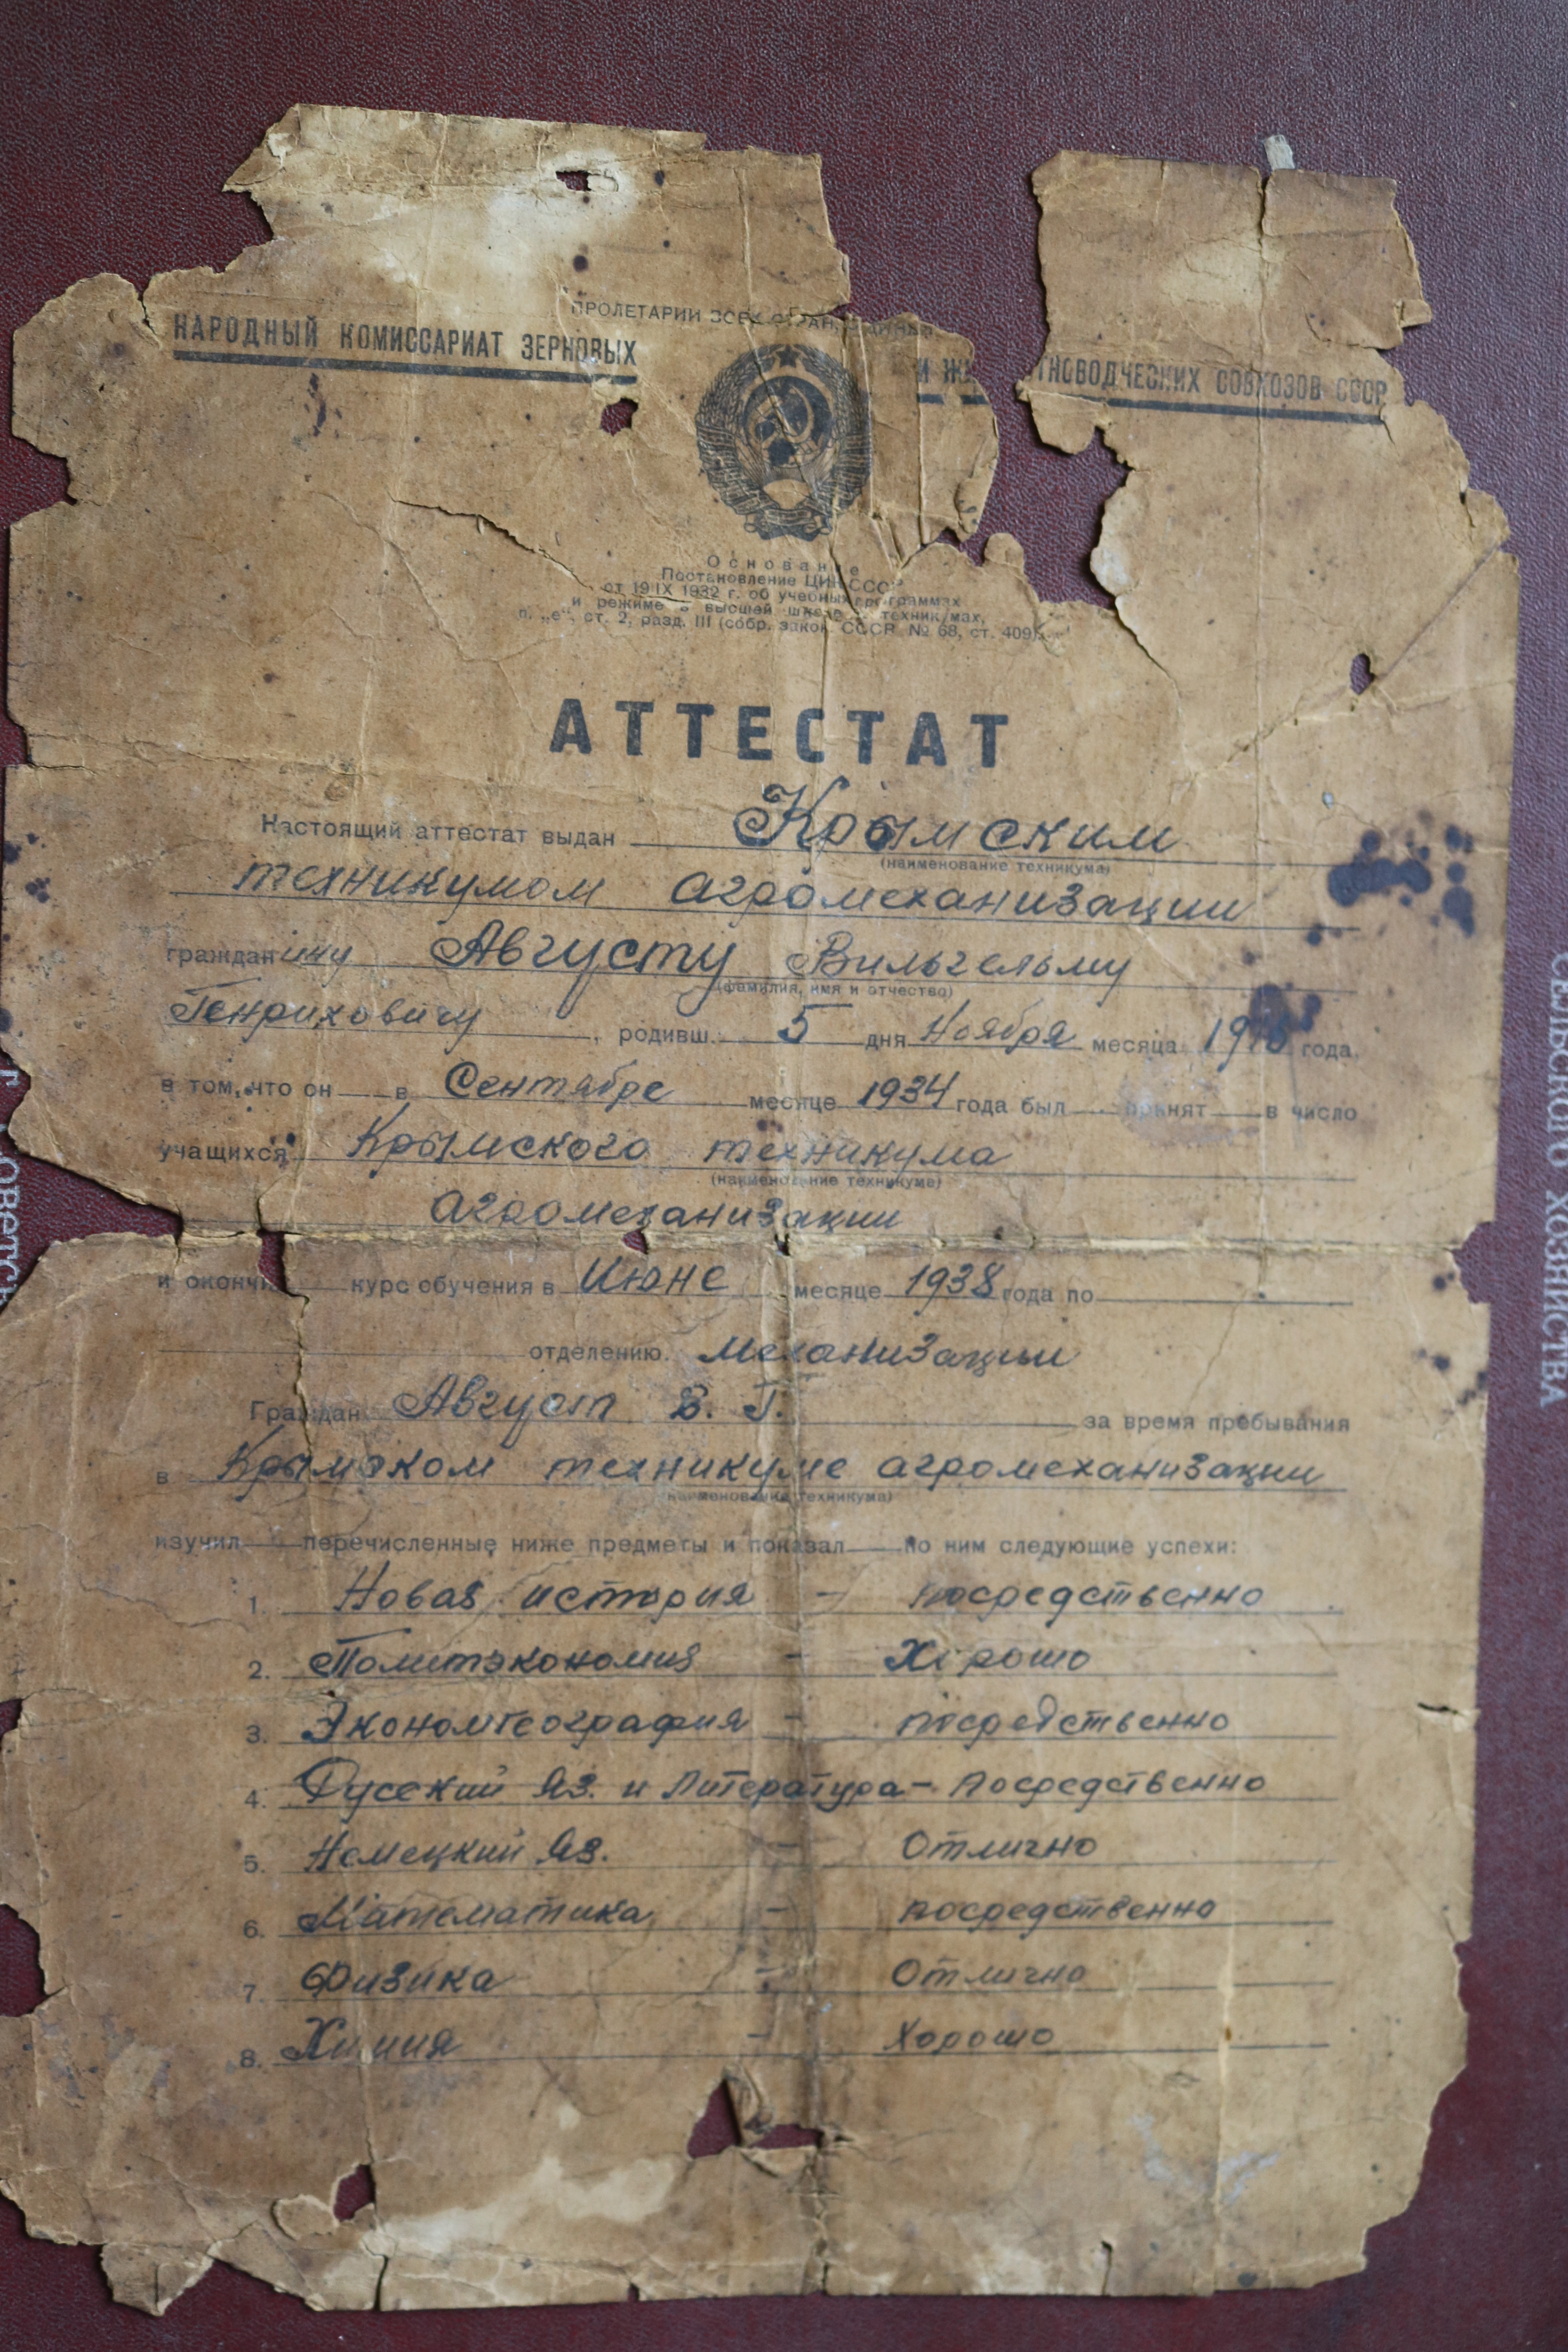 ПРОЛЕТАРИИ ВСЕХ СТРАН,
НАРОДНЫЙ КОМИССАРИАТ ЗЕРНОВЫХ И Ж ТНОВОДЧЕСКИХ СОВХОЗОВ СССР
Основание
Постановление ЦИК СССР
от 19 IX 1932 г. об учебных программах
и режиме в высшей школе и техникумах,
п. „е“, ст. 2, разд. III (собр. закон. СССР № 68, ст. 409).
АТТЕСТАТ
Настоящий аттестат выдан Крымским
(наименование техникума)
техникумом агромеханизации
гражданину Августу Вильгельму
(фамилия, имя и отчество)
Генриховичу, родивш. 5 дня Ноября месяца года,
в том, что он в Сентябре месяце 1934 года был принят в число
учащихся Крымского техникума
(наименование техникума)
агромеханизации
и окончи курс обучения в Июне месяце 1938 года по
отделению. Механизации
Граждан Август В. Г. за время пребывания
в Крымском техникуме агромеханизации
(наименование техникума)
изучил перечисленные ниже предметы и показал по ним следующие успехи:
1. Новая история - посредственно
2. Политэкономия - Хорошо
3. Экономгеография - посредственно
4. Русский яз. и литература - посредственно
5. Немецкий яз. - Отлично
6. Математика - посредственно
7. Физика - Отлично
8. Химия - Хорошо
СЕЛЬСКОГО ХОЗЯЙСТВА